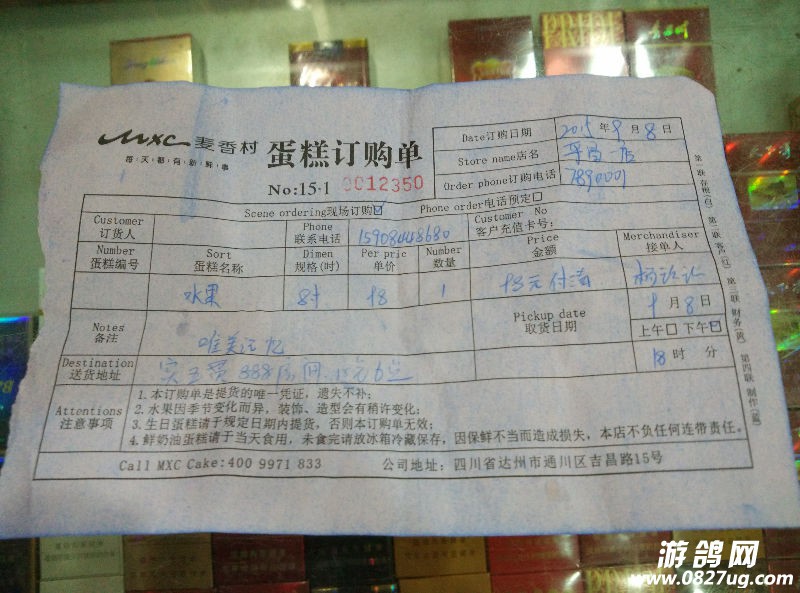 MXC 麦香村 蛋糕订购单
每天都有新鲜事
No:15·1 0012350
Date订购日期 2015年9月8日
Store name店名 平昌一店
Order phone订购电话 7890001
Scene ordering现场订购☑ Phone order电话预定□
Customer 订货人 Phone 联系电话 15908448680 Customer No 客户充值卡号:
Number 蛋糕编号 Sort 蛋糕名称 Dimen 规格(吋) Per pric 单价 Number 数量 Price 金额 Merchandiser 接单人
水果 8寸 98 1 98元付清
Notes 备注 唯美记忆 Pickup date 取货日期 9月8日
上午□ 下午☑
Destination 送货地址 888房间 18时 分
Attentions 注意事项
1.本订购单是提货的唯一凭证,遗失不补;
2.水果因季节变化而异,装饰、造型会有稍许变化;
3.生日蛋糕请于规定日期内提货,否则本订购单无效;
4.鲜奶油蛋糕请于当天食用,未食完请放冰箱冷藏保存,因保鲜不当而造成损失,本店不负任何连带责任。
Call MXC Cake:400 9971 833 公司地址:四川省达州市通川区吉昌路15号
第一联 存根(白) 第二联 客户(红) 第三联 财务(黄) 第四联 制作(蓝)
游鸽网
www.0827ug.com